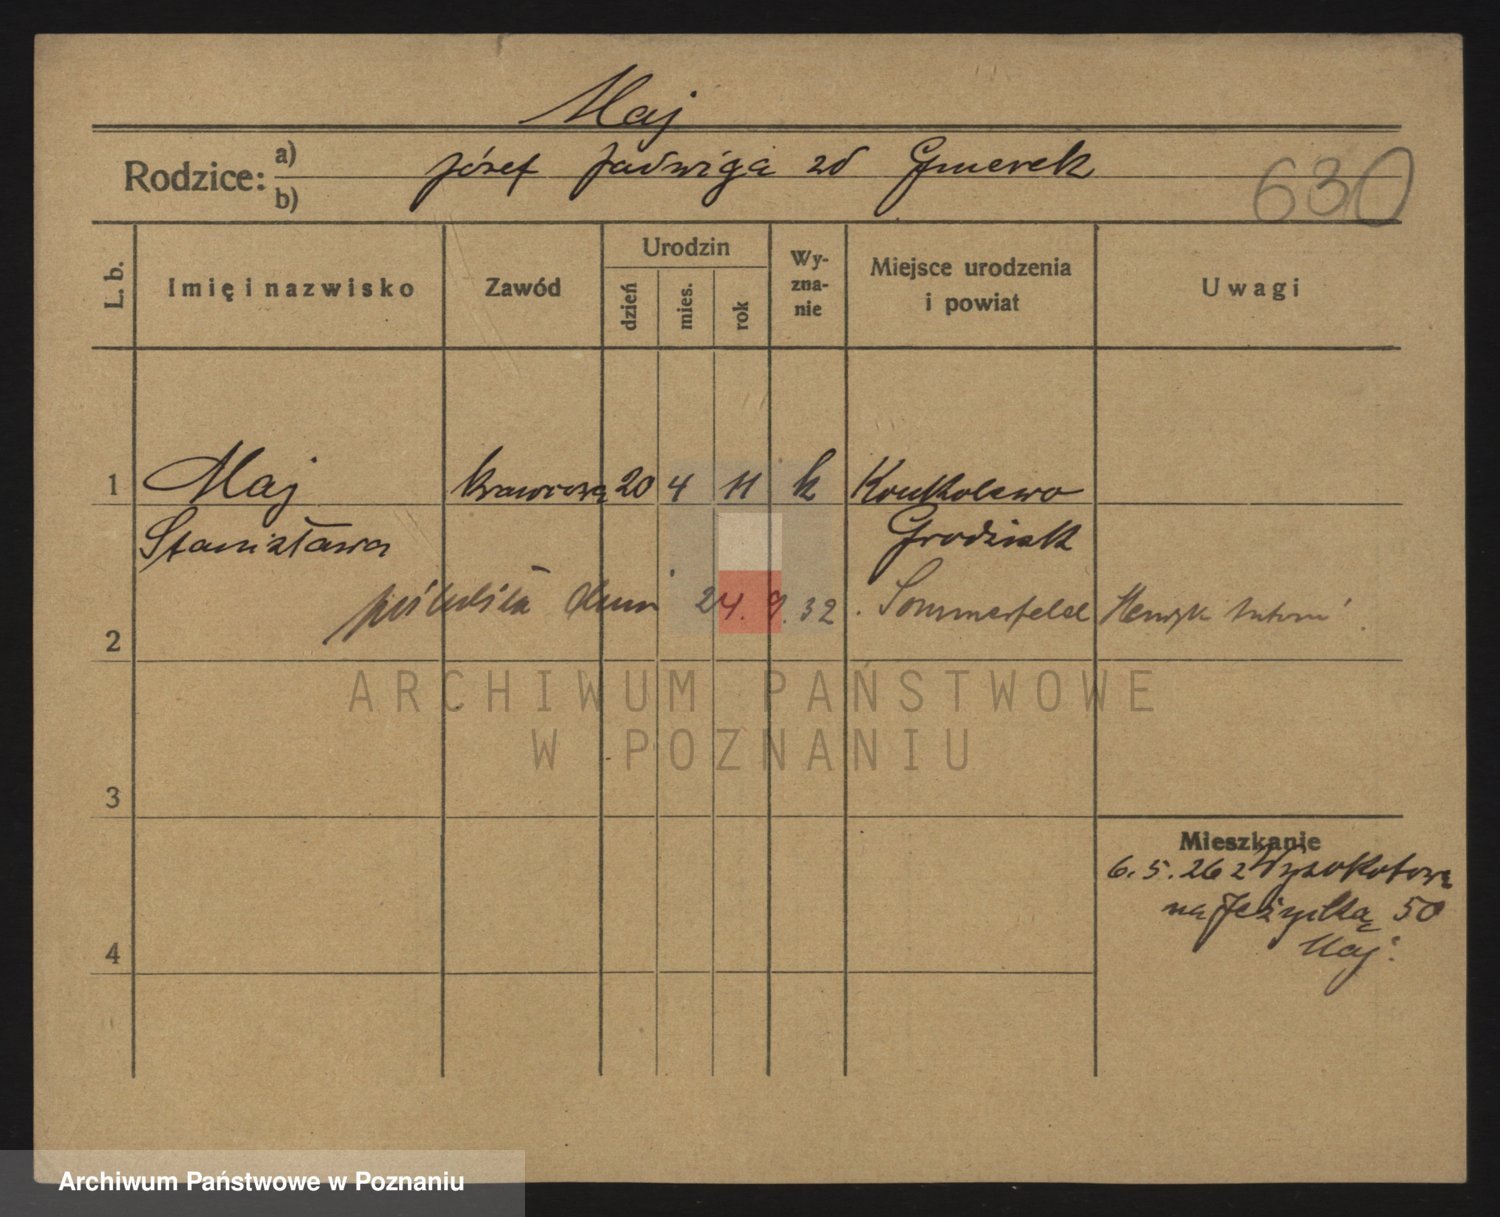 Maj
Rodzice: a) b)
Józef Jadwiga zd Gmerek
630
L. b. Imię i nazwisko Zawód Urodzin dzień mies. rok Wyznanie Miejsce urodzenia i powiat Uwagi
1 Maj krawcową 20 4 11 k Konkolewo
Stanisława Grodzisk
poślubiła dnia 24.9.32. Sommerfeld Henryk
2
ARCHIWUM PAŃSTWOWE
W POZNANIU
3
Mieszkanie
6.5.26 z Wysokotową
na Jeżycką 50
Maj.
4
Archiwum Państwowe w Poznaniu